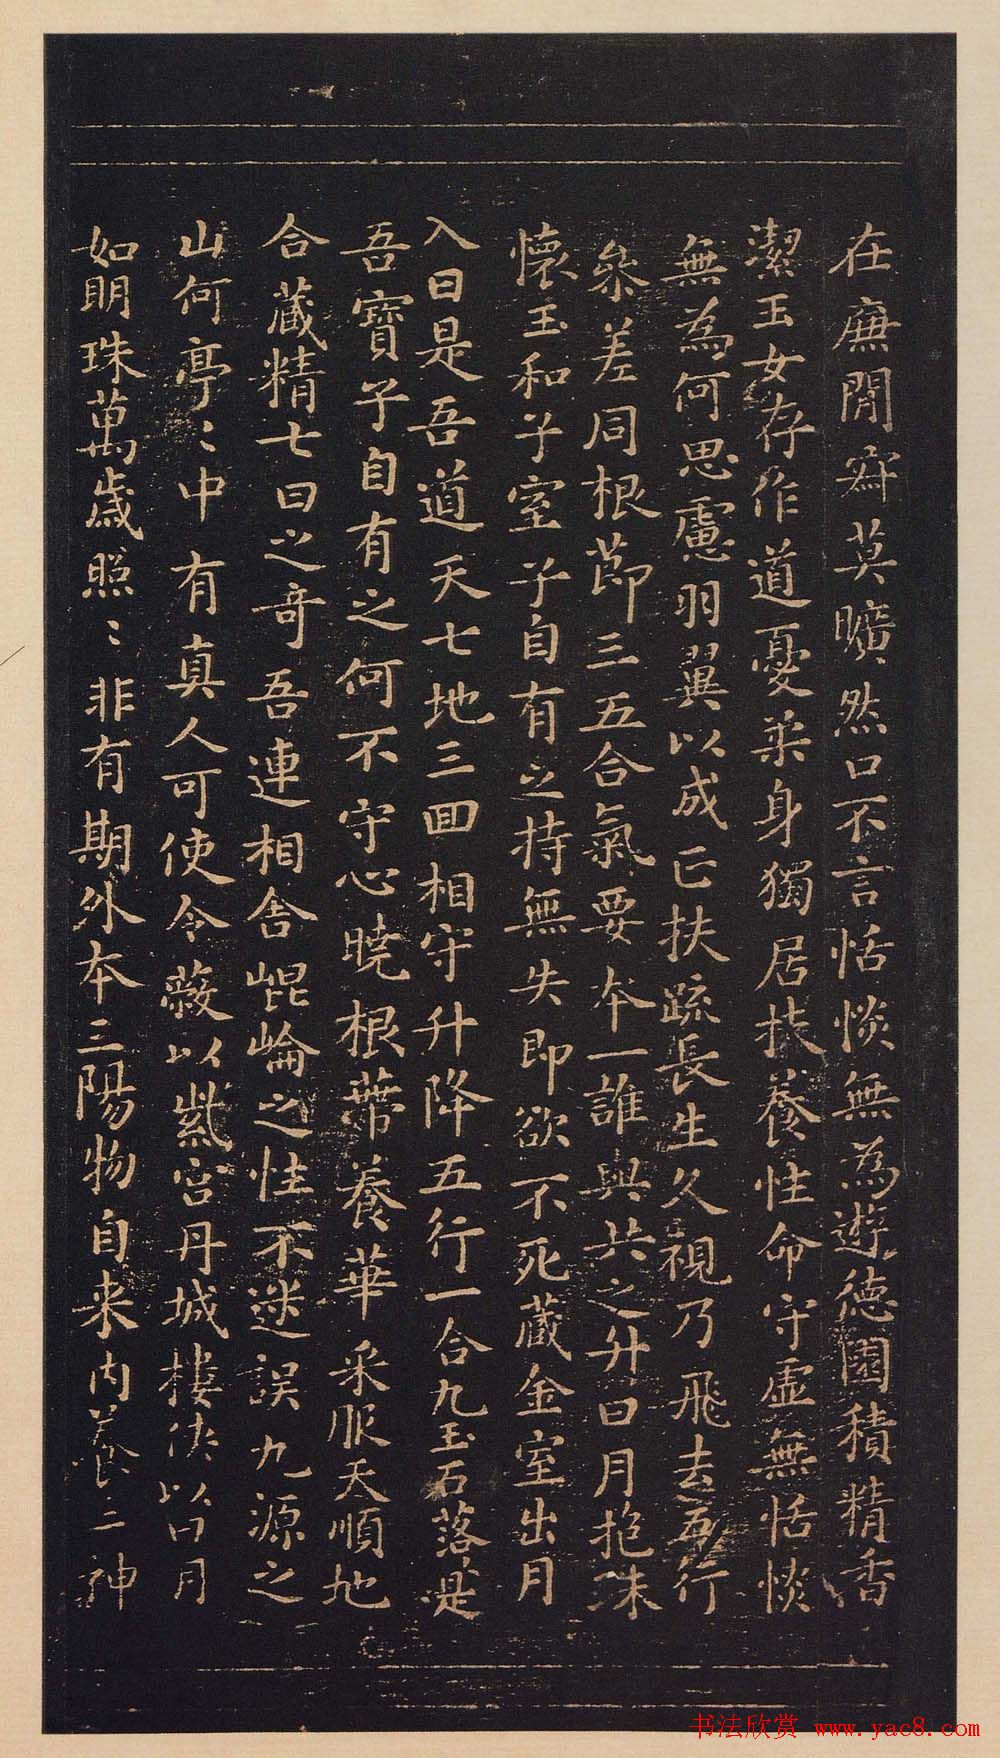 在廡閒寂莫曠然口不言恬惔無為遊德園積精香
潔玉女存作道憂柔身獨居扶養性命守虛無恬惔
無為何思慮羽翼以成正扶疏長生久視乃飛去五行
參差同根節三五合氣要本一誰與共之升日月抱珠
懷玉和子室子自有之持無失即欲不死藏金室出月
入日是吾道天七地三回相守升降五行一合九玉石落落是
吾寶子自有之何不守心曉根蒂養華采服天順地
合藏精七日之奇吾連相舍崐崘之性不迷誤九源之
山何亭〻中有真人可使令蔽以紫宮丹城樓俠以日月
如明珠萬歲照〻非有期外本三陽物自来内養三神
书法欣赏 www.yac8.com